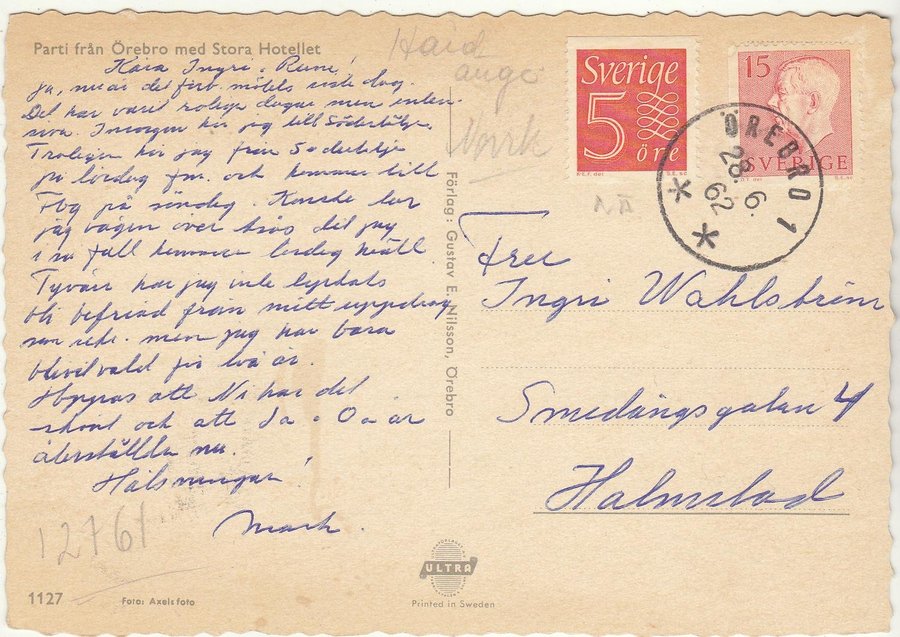 Parti från Örebro med Stora Hotellet
Kära Ingri o Rune!
Ja, nu är det förb. mötets sista dag.
Det har varit roliga dagar men inten-
siva. Imorgon far jag till Södertälje.
Troligen far jag från Södertälje
på lördag fm. och kommer till
Fbg på söndag. Kanske tar
jag vägen över
i så fall kommer lördag kväll.
Tyvärr har jag inte lyckats
bli befriad från mitt uppdrag
som men jag har bara
blivit vald för två år.
Hoppas att Ni har det
skönt och att är
återställda nu.
Hälsningar!
12761
1127
Foto: Axelsfoto
Förlag: Gustav E. Nilsson, Örebro
ULTRA
Printed in Sweden
Sverige
5
öre
15
SVERIGE
ÖREBRO 1
28. 6.
62
Fru
Ingri Wahlström
Smedängsgatan 4
Halmstad